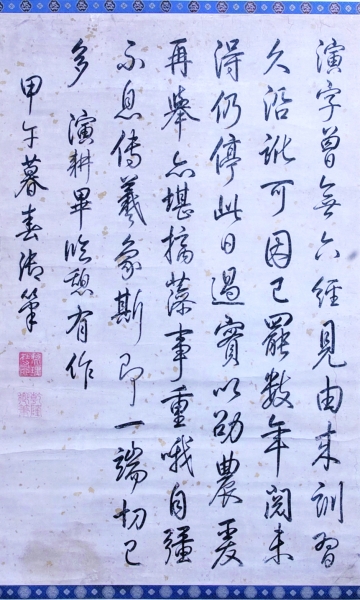 演字曾無六經見由來訓習
久沿訛可因已罷數年閱未
得仍停此日過實以劭農爰
再舉亦堪摛藻事重哦自彊
不息傳羲象斯即一端切己
多 演耕畢臨憩有作
甲午暮春御筆